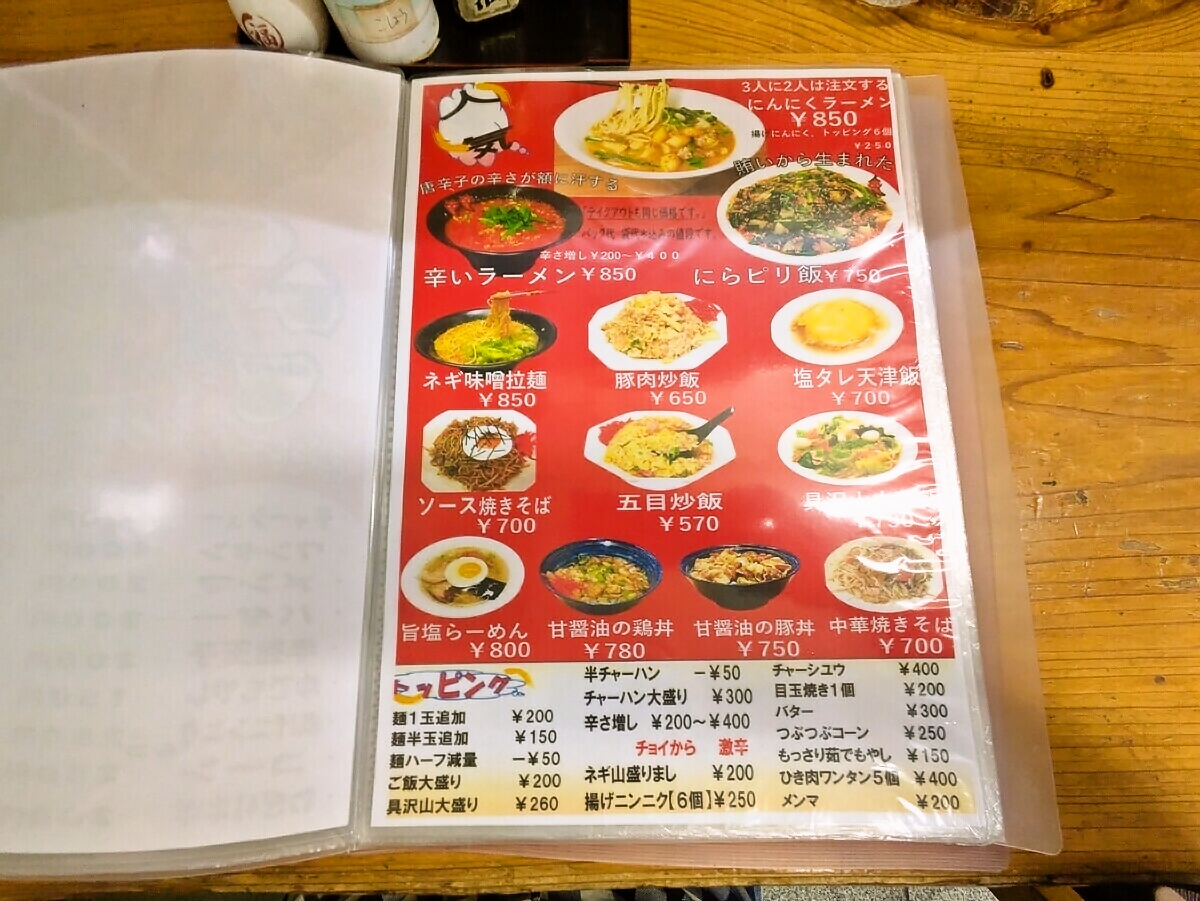 福
こしょう
人気
3人に2人は注文する
にんにくラーメン
￥850
揚げにんにく、トッピング6個
￥250
賄いから生まれた
唐辛子の辛さが額に汗する
「テイクアウトも同じ価格です。」
パック代、袋代も込みの値段です。
辛さ増し￥200～￥400
辛いラーメン￥850
にらピリ飯￥750
ネギ味噌拉麺
￥850
豚肉炒飯
￥650
塩タレ天津飯
￥700
ソース焼きそば
￥700
五目炒飯
￥570
具沢山
旨塩らーめん
￥800
甘醤油の鶏丼
￥780
甘醤油の豚丼
￥750
中華焼きそば
￥700
トッピング
麺1玉追加 ￥200
麺半玉追加 ￥150
麺ハーフ減量 －￥50
ご飯大盛り ￥200
具沢山大盛り ￥260
半チャーハン －￥50
チャーハン大盛り ￥300
辛さ増し ￥200～￥400
チョイから 激辛
ネギ山盛りまし ￥200
揚げニンニク【6個】￥250
チャーシュウ ￥400
目玉焼き1個 ￥200
バター ￥300
つぶつぶコーン ￥250
もっさり茹でもやし ￥150
ひき肉ワンタン5個 ￥400
メンマ ￥200